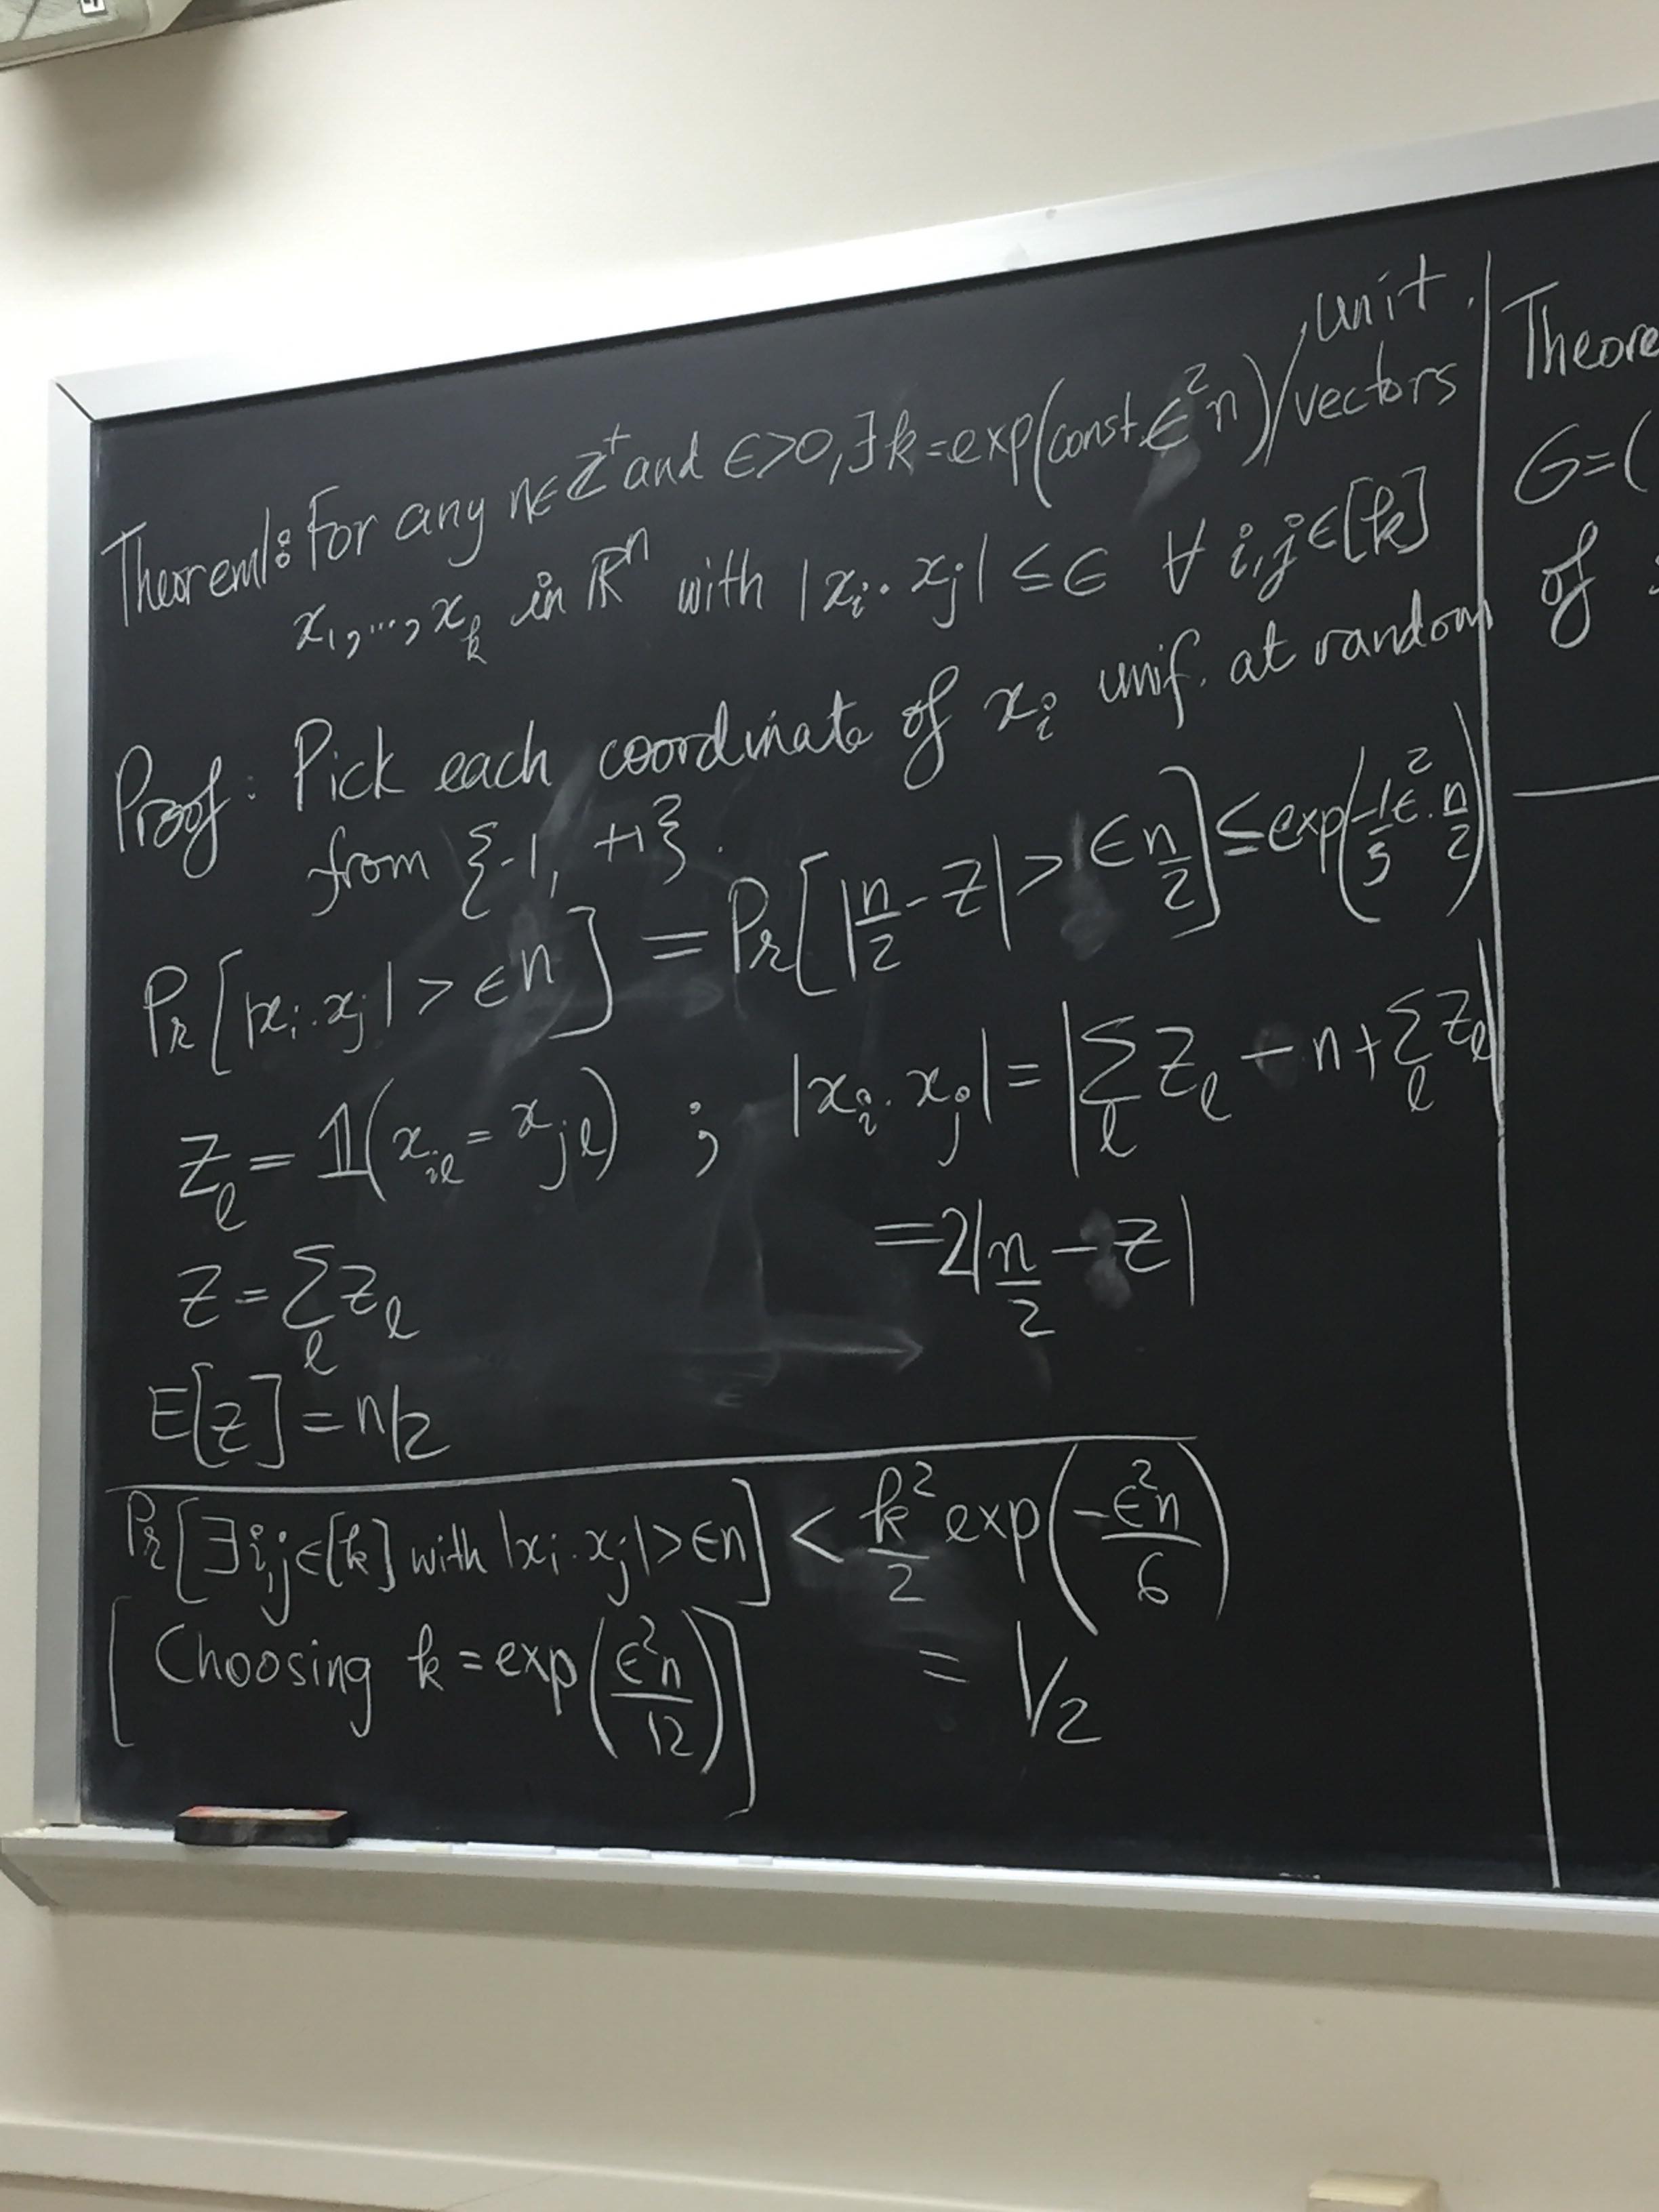 Theorem 1: For any n∈Z⁺ and ϵ>0, ∃ k=exp(const. ϵ²n) unit vectors
x₁,...,x_k in ℝⁿ with |x_i · x_j| ≤ ϵ ∀ i,j∈[k]
Proof: Pick each coordinate of x_i unif. at random
from {-1, +1}.
Pr[|x_i · x_j| > ϵn] = Pr[|n/2 - Z| > ϵ n/2] ≤ exp(-1/3 ϵ² · n/2)
Z_ℓ = 𝟙(x_{iℓ} = x_{jℓ}) ; |x_i · x_j| = |∑_ℓ Z_ℓ - n + ∑_ℓ Z_ℓ|
= 2|n/2 - Z|
Z = ∑_ℓ Z_ℓ
E[Z] = n/2
Pr[∃ i,j∈[k] with |x_i · x_j| > ϵn] < k²/2 exp(-ϵ²n/6)
[Choosing k = exp(ϵ²n/12)] = 1/2
Theore
G=(
of